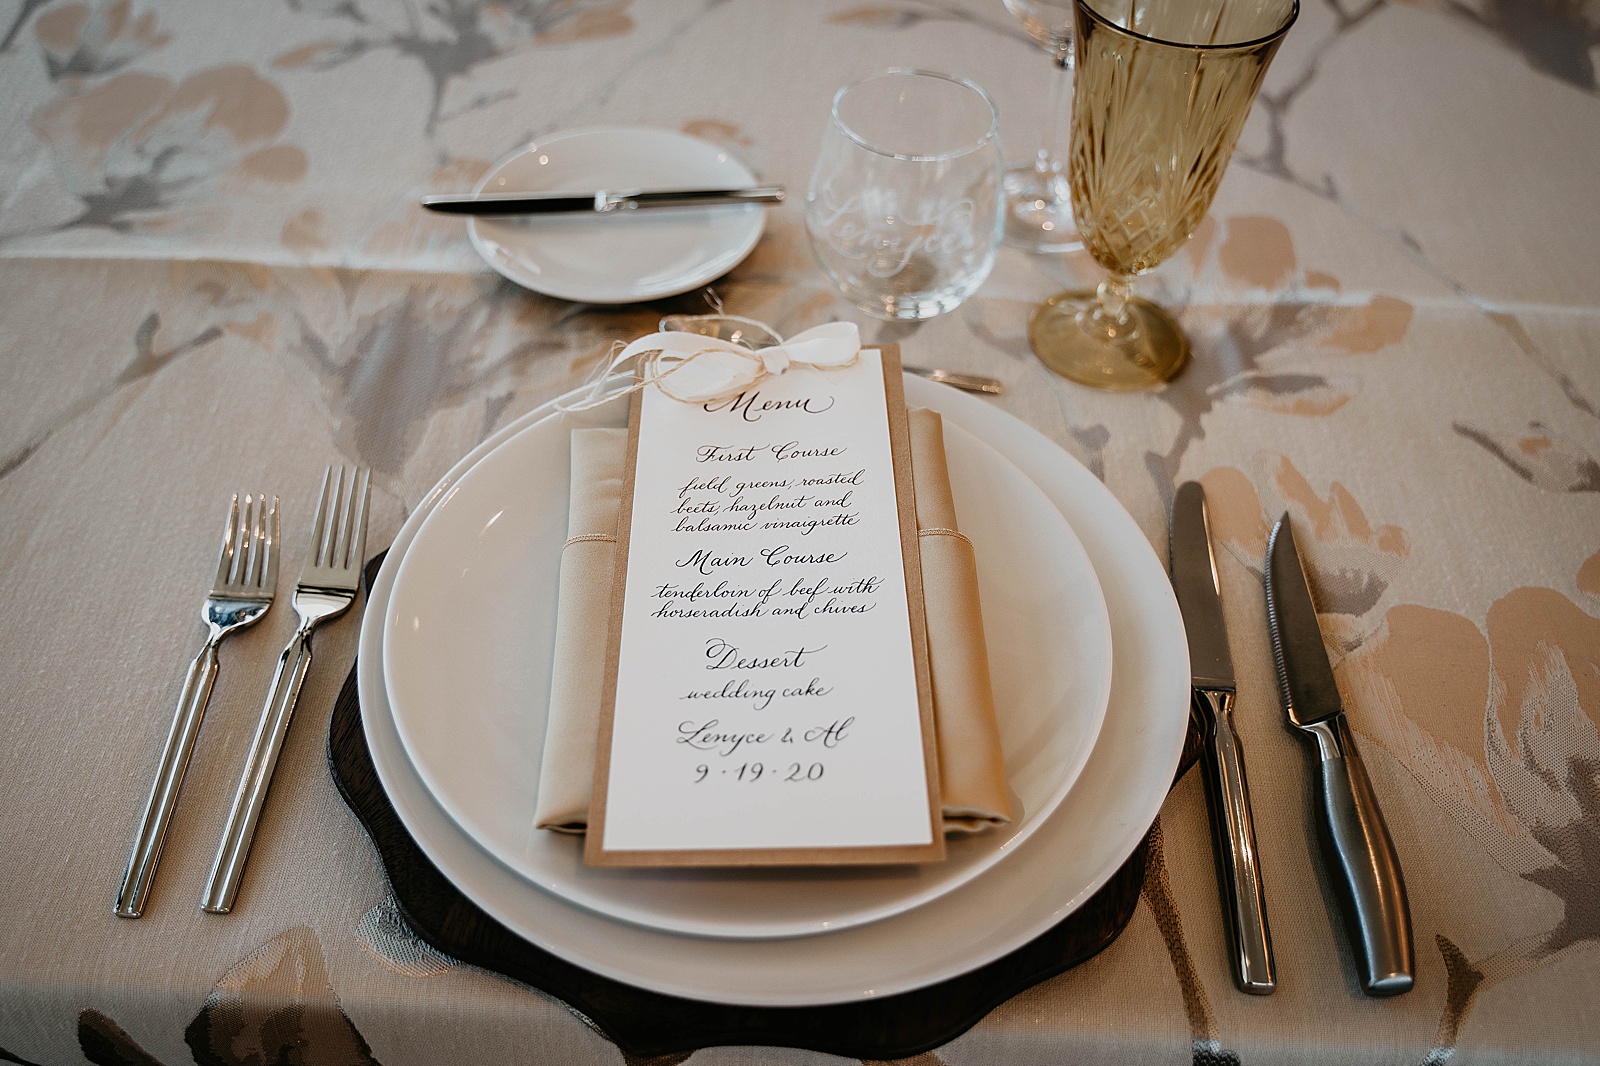 Lenyce
Menu
First Course
field greens, roasted
beets, hazelnut and
balsamic vinaigrette
Main Course
tenderloin of beef with
horseradish and chives
Dessert
wedding cake
Lenyce & Al
9·19·20